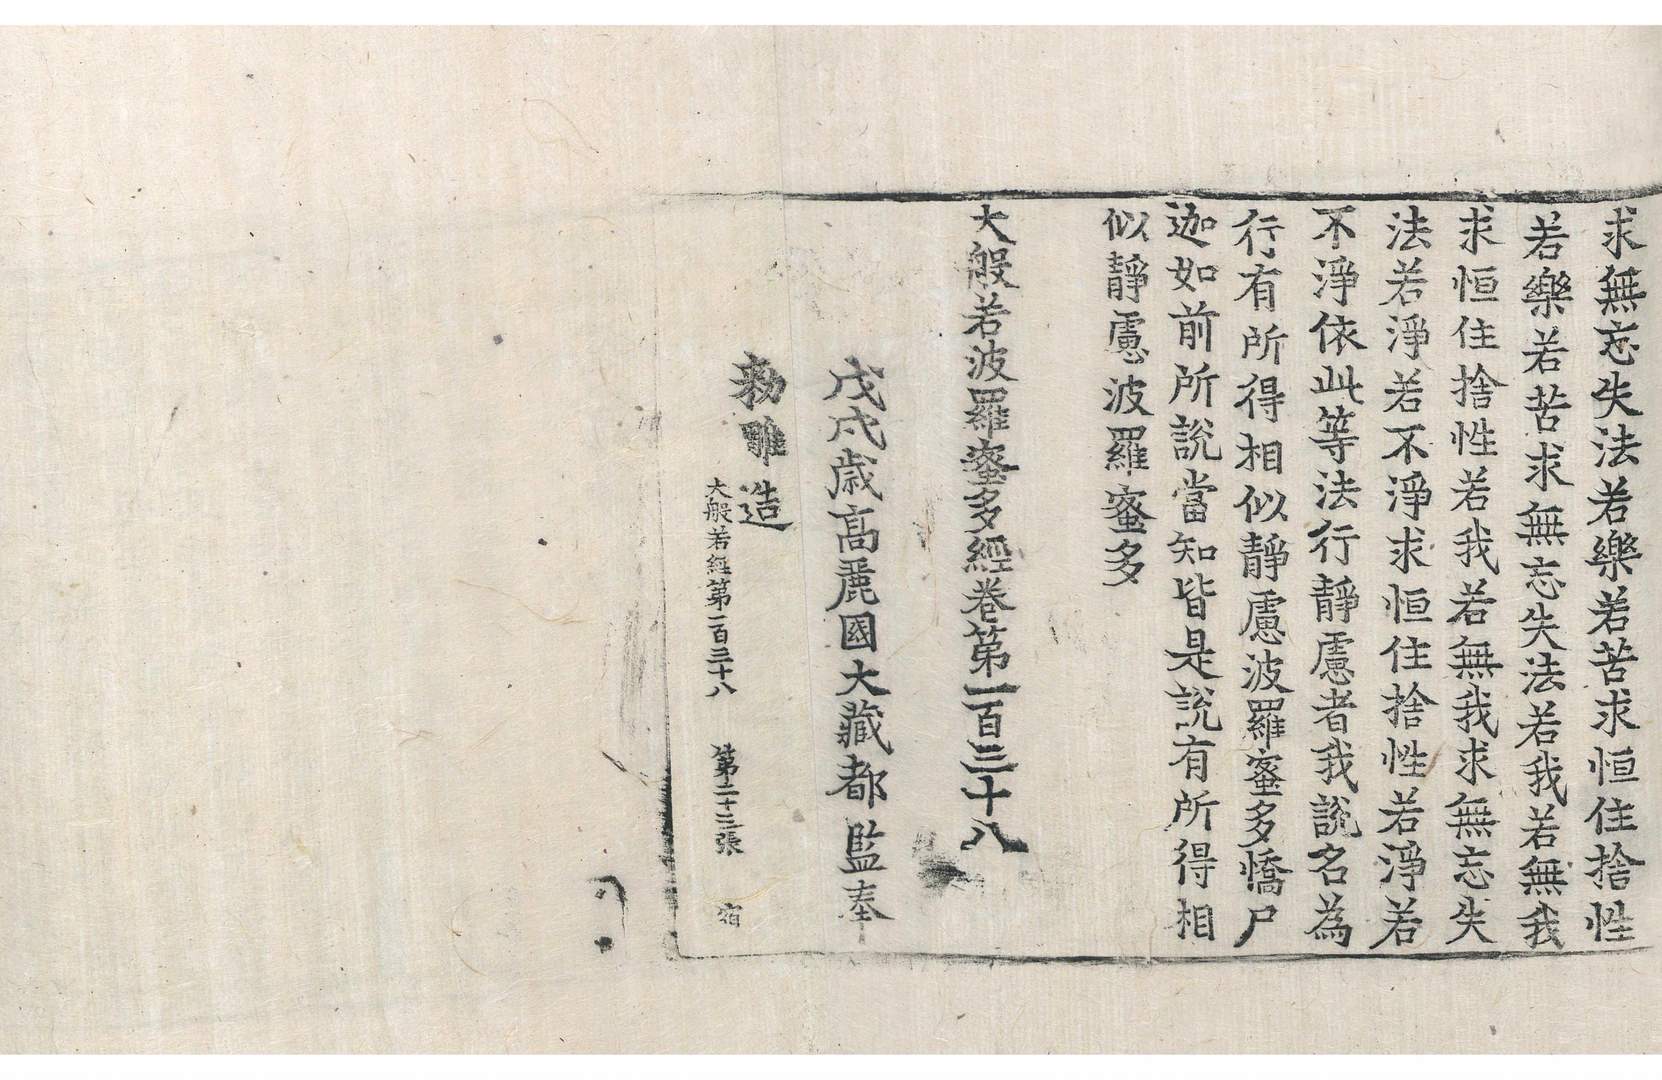 求無忘失法若樂若苦求恒住捨性
若樂若苦求無忘失法若我若無我
求恒住捨性若我若無我求無忘失
法若淨若不淨求恒住捨性若淨若
不淨依此等法行靜慮者我說名為
行有所得相似靜慮波羅蜜多憍尸
迦如前所說當知皆是說有所得相
似靜慮波羅蜜多
大般若波羅蜜多經卷第一百三十八
戊戌歲高麗國大藏都監奉
勅雕造
大般若經第一百三十八 第二十三張 宿